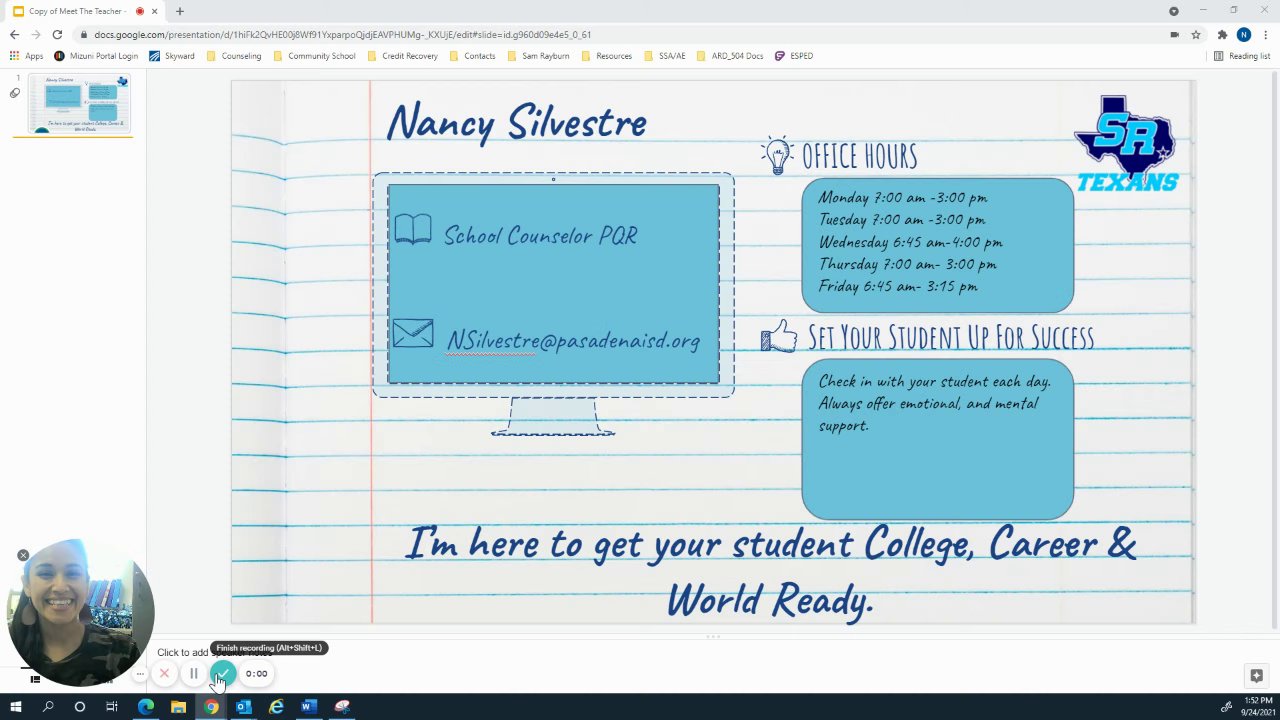 Copy of Meet The Teacher -
docs.google.com/presentation/d/1hiFk2QvHE00j8Wf91YxparpoQjdjEAVPHUMg-_KXUjE/edit#slide=id.g960d09e4e5_0_61
Apps Mizuni Portal Login Skyward Counseling Community School Credit Recovery Contacts Sam Rayburn Resources SSA/AE ARD_504 Docs ESPED Reading list
1
Nancy Silvestre
SR
TEXANS
OFFICE HOURS
Monday 7:00 am -3:00 pm
Tuesday 7:00 am -3:00 pm
Wednesday 6:45 am-4:00 pm
Thursday 7:00 am- 3:00 pm
Friday 6:45 am- 3:15 pm
School Counselor PQR
NSilvestre@pasadenaisd.org
SET YOUR STUDENT UP FOR SUCCESS
Check in with your student each day.
Always offer emotional, and mental
support.
I'm here to get your student College, Career &
World Ready.
Finish recording (Alt+Shift+L)
Click to add
0:00
1:52 PM
9/24/2021